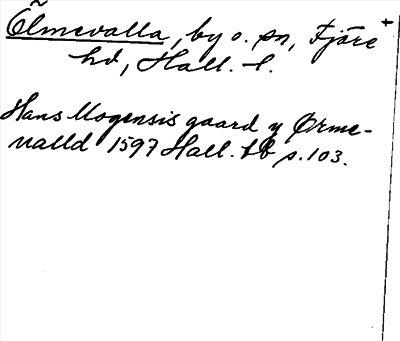 Ölmevalla, by o. sn, Fjäre
hd, Hall. l.
Hans Mogensis gaard y Ørme-
valld 1597 Hall. Lb s. 103.